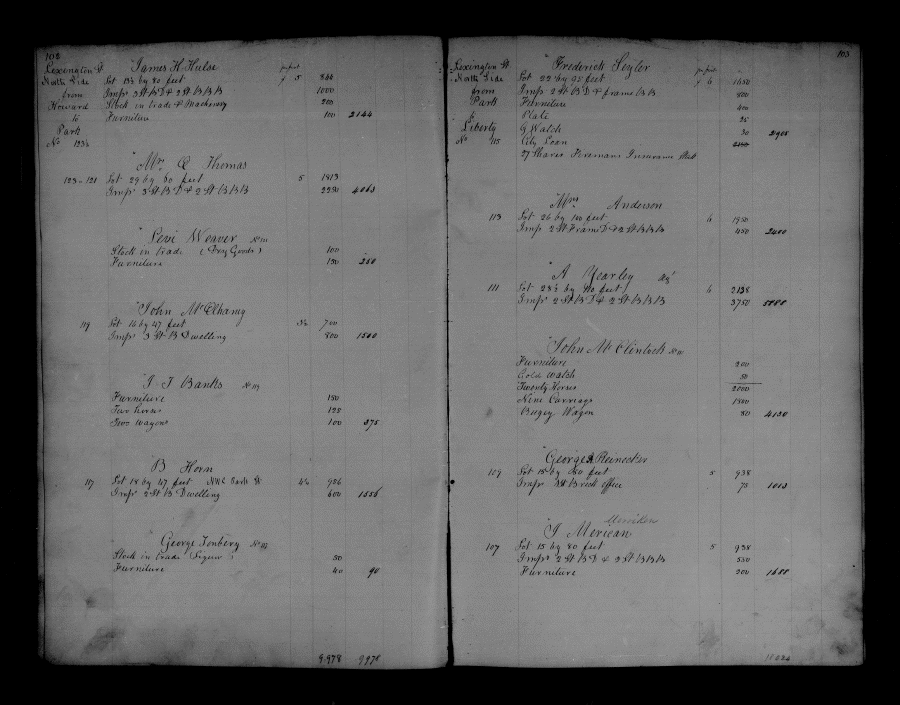 102
Lexington St James H Hulse per foot
North Side Lot 13½ by 80 feet 5 844
from Imps 3 St B D & 2 St B B B 1000
Howard Stock in trade & Machinery 200
to Furniture 100 2144
Park
No 123½
Mrs C Thomas
123-121 Lot 29 by 80 feet 5 1813
Imps 3 St B D & 2 St B B B 2250 4063
Levi Weaver No 111
Stock in trade (Dry Goods) 100
Furniture 150 250
John McElhany
119 Lot 16 by 47 feet 700
Imps 3 St B Dwelling 800 1500
J J Banks No 119
Furniture 150
Two horses 120
Two wagons 100 375
B Horn
117 Lot 18 by 47 feet NWC Park St 4½ 956
Imps 2 St B Dwelling 600 1556
George Tonberg No 117
Stock in trade 50
Furniture 40 90
9.978 9978
103
Lexington St Frederick Seyler per foot
North Side Lot 22 by 95 feet 6 1650
from Imps 2 St B D & frame B B 800
Park Furniture 400
to Plate 25
Liberty G Watch 30 2905
No 115 City Loan
27 Shares Firemans Insurance Stock
Mrs Anderson
113 Lot 26 by 100 feet 6 1950
Imps 2 St Frame D & 2 St B B B 450 2400
A Yearley
111 Lot 28½ by 80 feet 6 2138
Imps 2 St B D & 2 St B B B 3750 5888
John McClintock No 111
Furniture 200
Gold Watch 50
Twenty Horses 2000
Nine Carriages 1800
Bugey Wagon 80 4130
George Reinecker
109 Lot 15 by 80 feet 5 938
Imps 1 St Brick office 75 1013
Meriden
J Merican
107 Lot 15 by 80 feet 5 938
Imps 2 St B D & 2 St B B B 550
Furniture 200 1688
18024